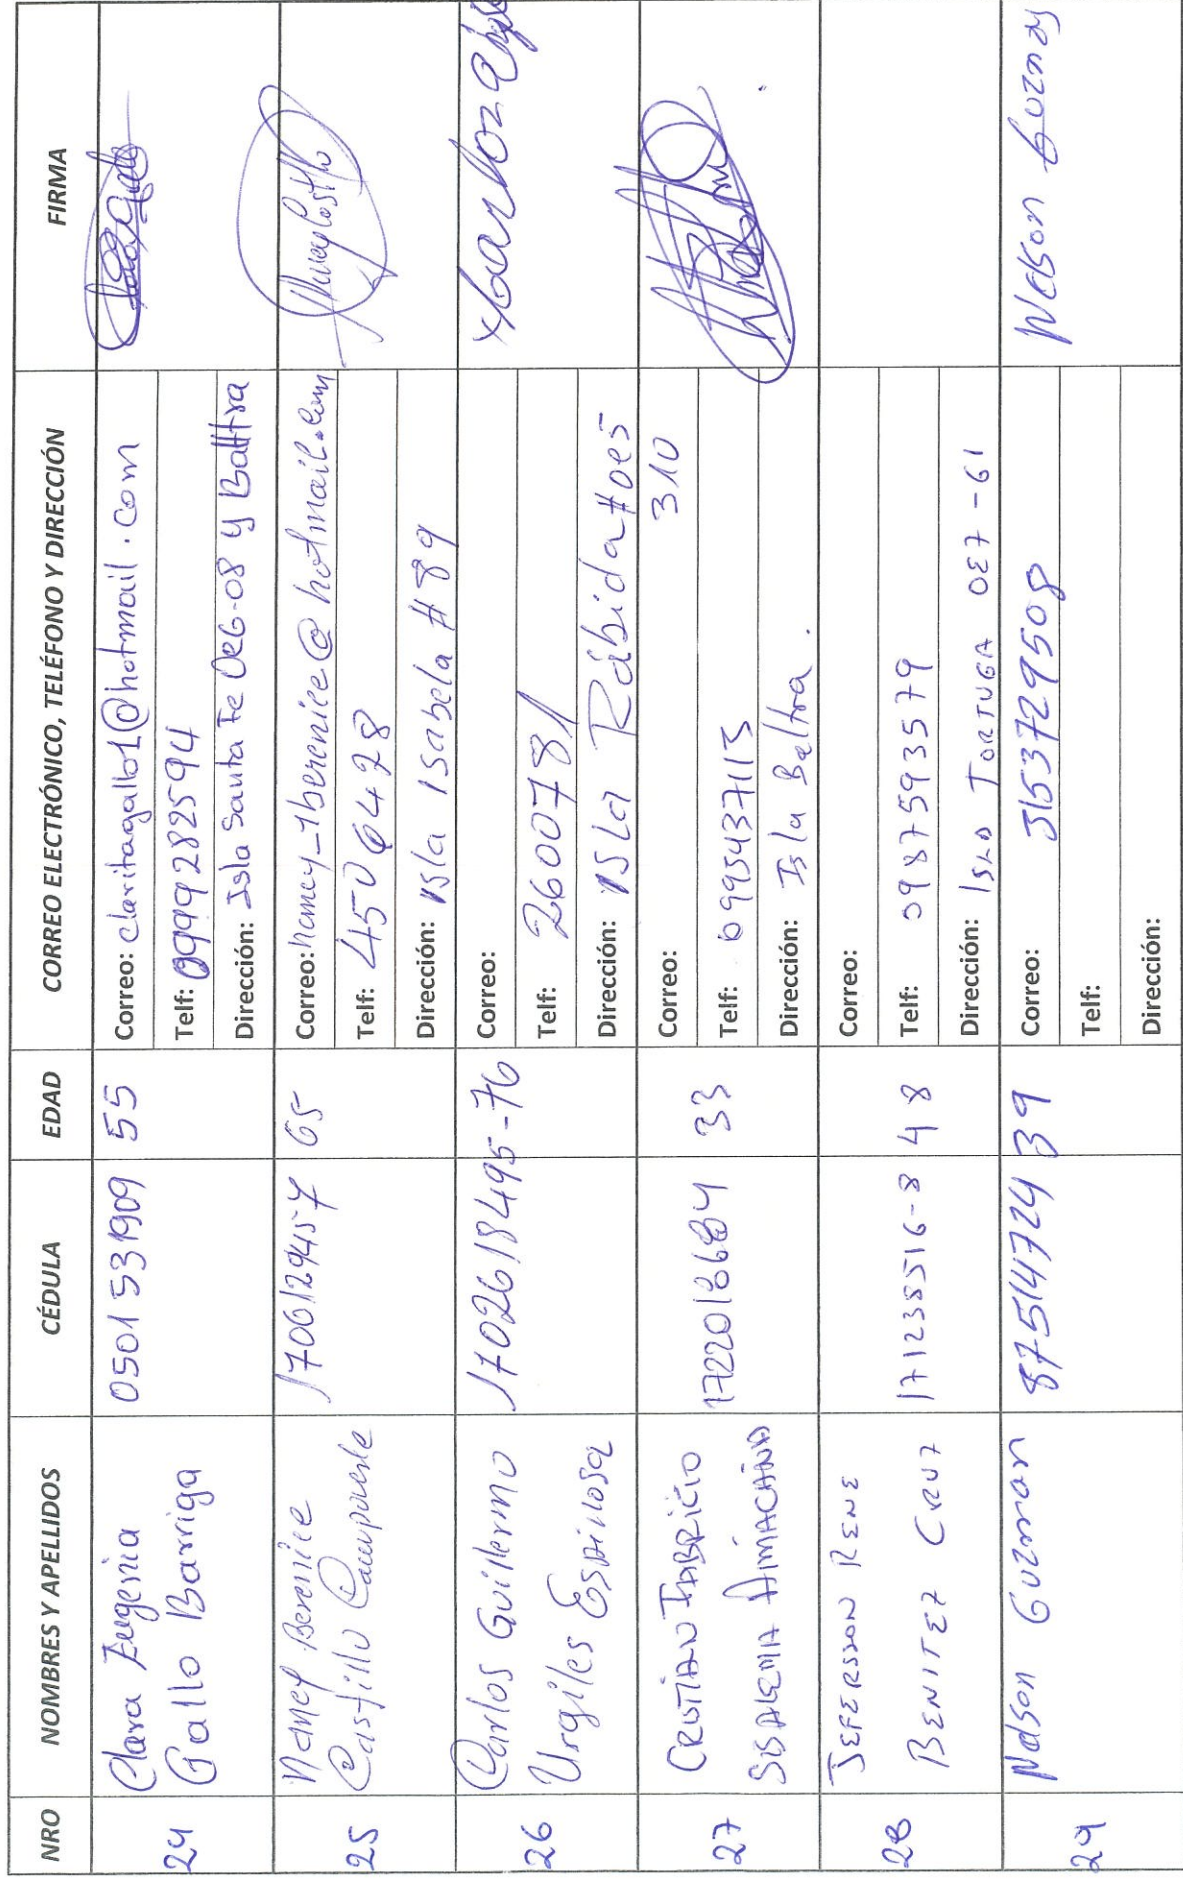 NRO NOMBRES Y APELLIDOS CÉDULA EDAD CORREO ELECTRÓNICO, TELÉFONO Y DIRECCIÓN FIRMA
24 Clara Eugenia Gallo Barriga 0501531909 55
Correo: claritagallo1@hotmail.com
Telf: 0999282594
Dirección: Isla Santa Fe Oe6-08 y Balttra
25 Nancy Berenice Castillo Campoverde 1706129457 65
Correo: nancy_1berenice@hotmail.com
Telf: 4506428
Dirección: Isla Isabela # 89
26 Carlos Guillermo Urgiles Espinosa 1702618495-76
Correo:
Telf: 2600781
Dirección: Isla Rábida #oe5
27 Cristian Fabricio Sisalema Aimacaña 1722018684 33
Correo: 310
Telf: 0995437113
Dirección: Isla Baltra.
28 JEFERSSON RENE BENITEZ CRUZ 171238516-8 48
Correo:
Telf: 0987593579
Dirección: ISLA TORTUGA OE7-61
29 Nelson Guzman 87514724 39
Correo: 3153729508
Telf:
Dirección:
Nelson Guzman